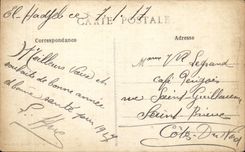 El Hadjeb ce 7.1.17
CARTE POSTALE
Correspondance
Meilleurs Vœux et
souhaits de bonne année
et bonne santé pour 1917
Monsieur V R Legrand
café
rue Saint Guillaume
Saint Brieuc
Côtes du Nord